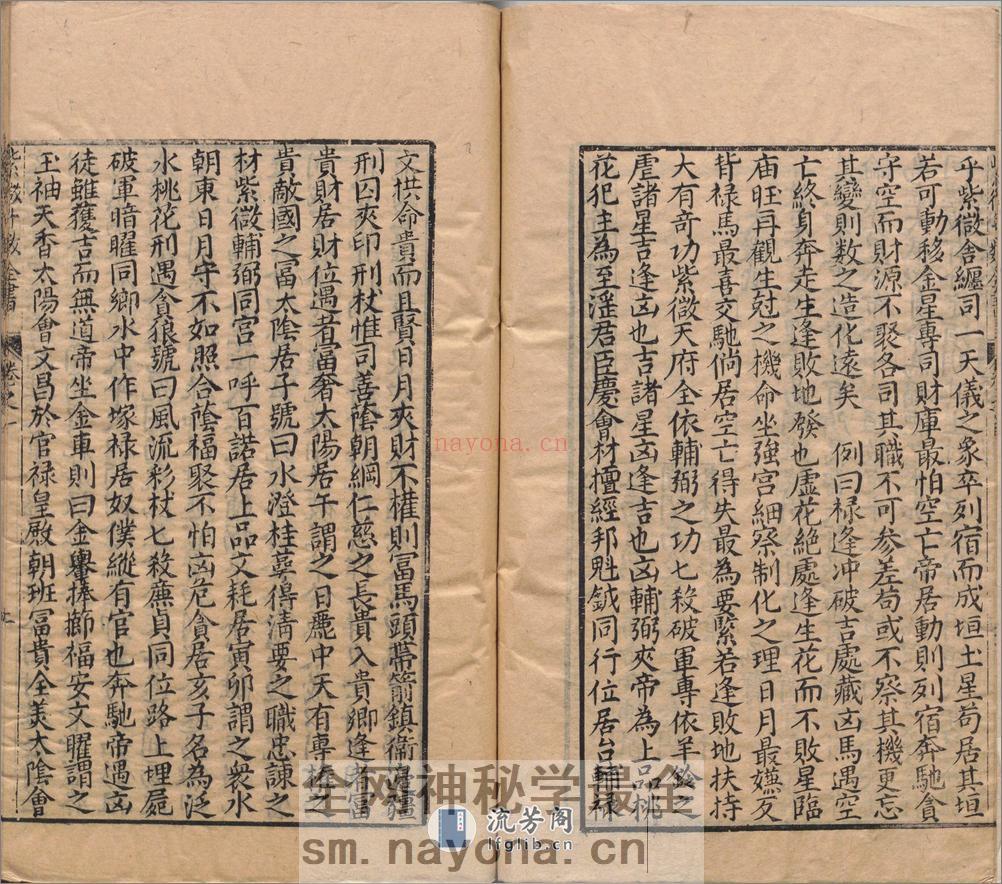 乎紫微舍纏司一天儀之象卒列宿而成垣土星苟居其垣
若可動移金星專司財庫最怕空亡帝居動則列宿奔馳貪
守空而財源不聚各司其職不可參差苟或不察其機更忘
其變則数之造化遠矣　例曰禄逢冲破吉處藏凶馬遇空
亡終身奔走生逢敗地發也虛花絕處逢生花而不敗星臨
庙旺再觀生尅之機命坐強宮細察制化之理日月最嫌反
背禄馬最喜交馳倘居空亡得失最為要緊若逢敗地扶持
大有奇功紫微天府全依輔弼之功七殺破軍專依羊鈴之
虐諸星吉逢凶也吉諸星凶逢吉也凶輔弼夾帝為上品桃
花犯主為至淫君臣慶會材擅經邦魁鉞同行位居台輔禄
文拱命貴而且賢日月夾財不權則冨馬頭帶箭鎮衛邊疆
刑囚夾印刑杖惟司善蔭朝綱仁慈之長貴入貴卿逢者富
貴財居財位遇者富奢太陽居午謂之日麗中天有專權之
貴敵國之冨太陰居子號曰水澄桂萼得清要之職忠諫之
材紫微輔弼同宮一呼百諾居上品文耗居寅卯謂之衆水
朝東日月守不如照合蔭福聚不怕凶危貪居亥子名為泛
水桃花刑遇貪狼號曰風流彩杖七殺廉貞同位路上埋屍
破軍暗曜同鄉水中作塚禄居奴僕縱有官也奔馳帝遇凶
徒雖獲吉而無道帝坐金車則曰金轝捧櫛福安文曜謂之
玉袖天香太陽會文昌於官禄皇殿朝班冨貴全美太陰會
卷之一
nayona.cn
全网神秘学最全
流芳阁
lfglib.cn
sm.nayona.cn